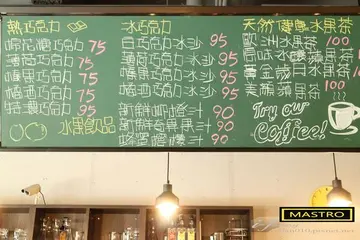 熱巧克力
棉花糖巧克力 75
薄荷巧克力 75
榛果巧克力 75
橙酒巧克力 75
特濃巧克力 95
水果飲品
冰巧克力
白巧克力冰沙 95
薄荷巧克力冰沙 95
榛果巧克力冰沙 95
橙酒巧克力冰沙 95
新鮮柳橙汁 90
新鮮 果汁 90
蜂蜜檸檬汁 90
天然健康水果茶
歐洲水果茶 100
蘋果茶
黃金 白水果茶
美 蘋果茶 100
Try our
Coffee!
MASTRO